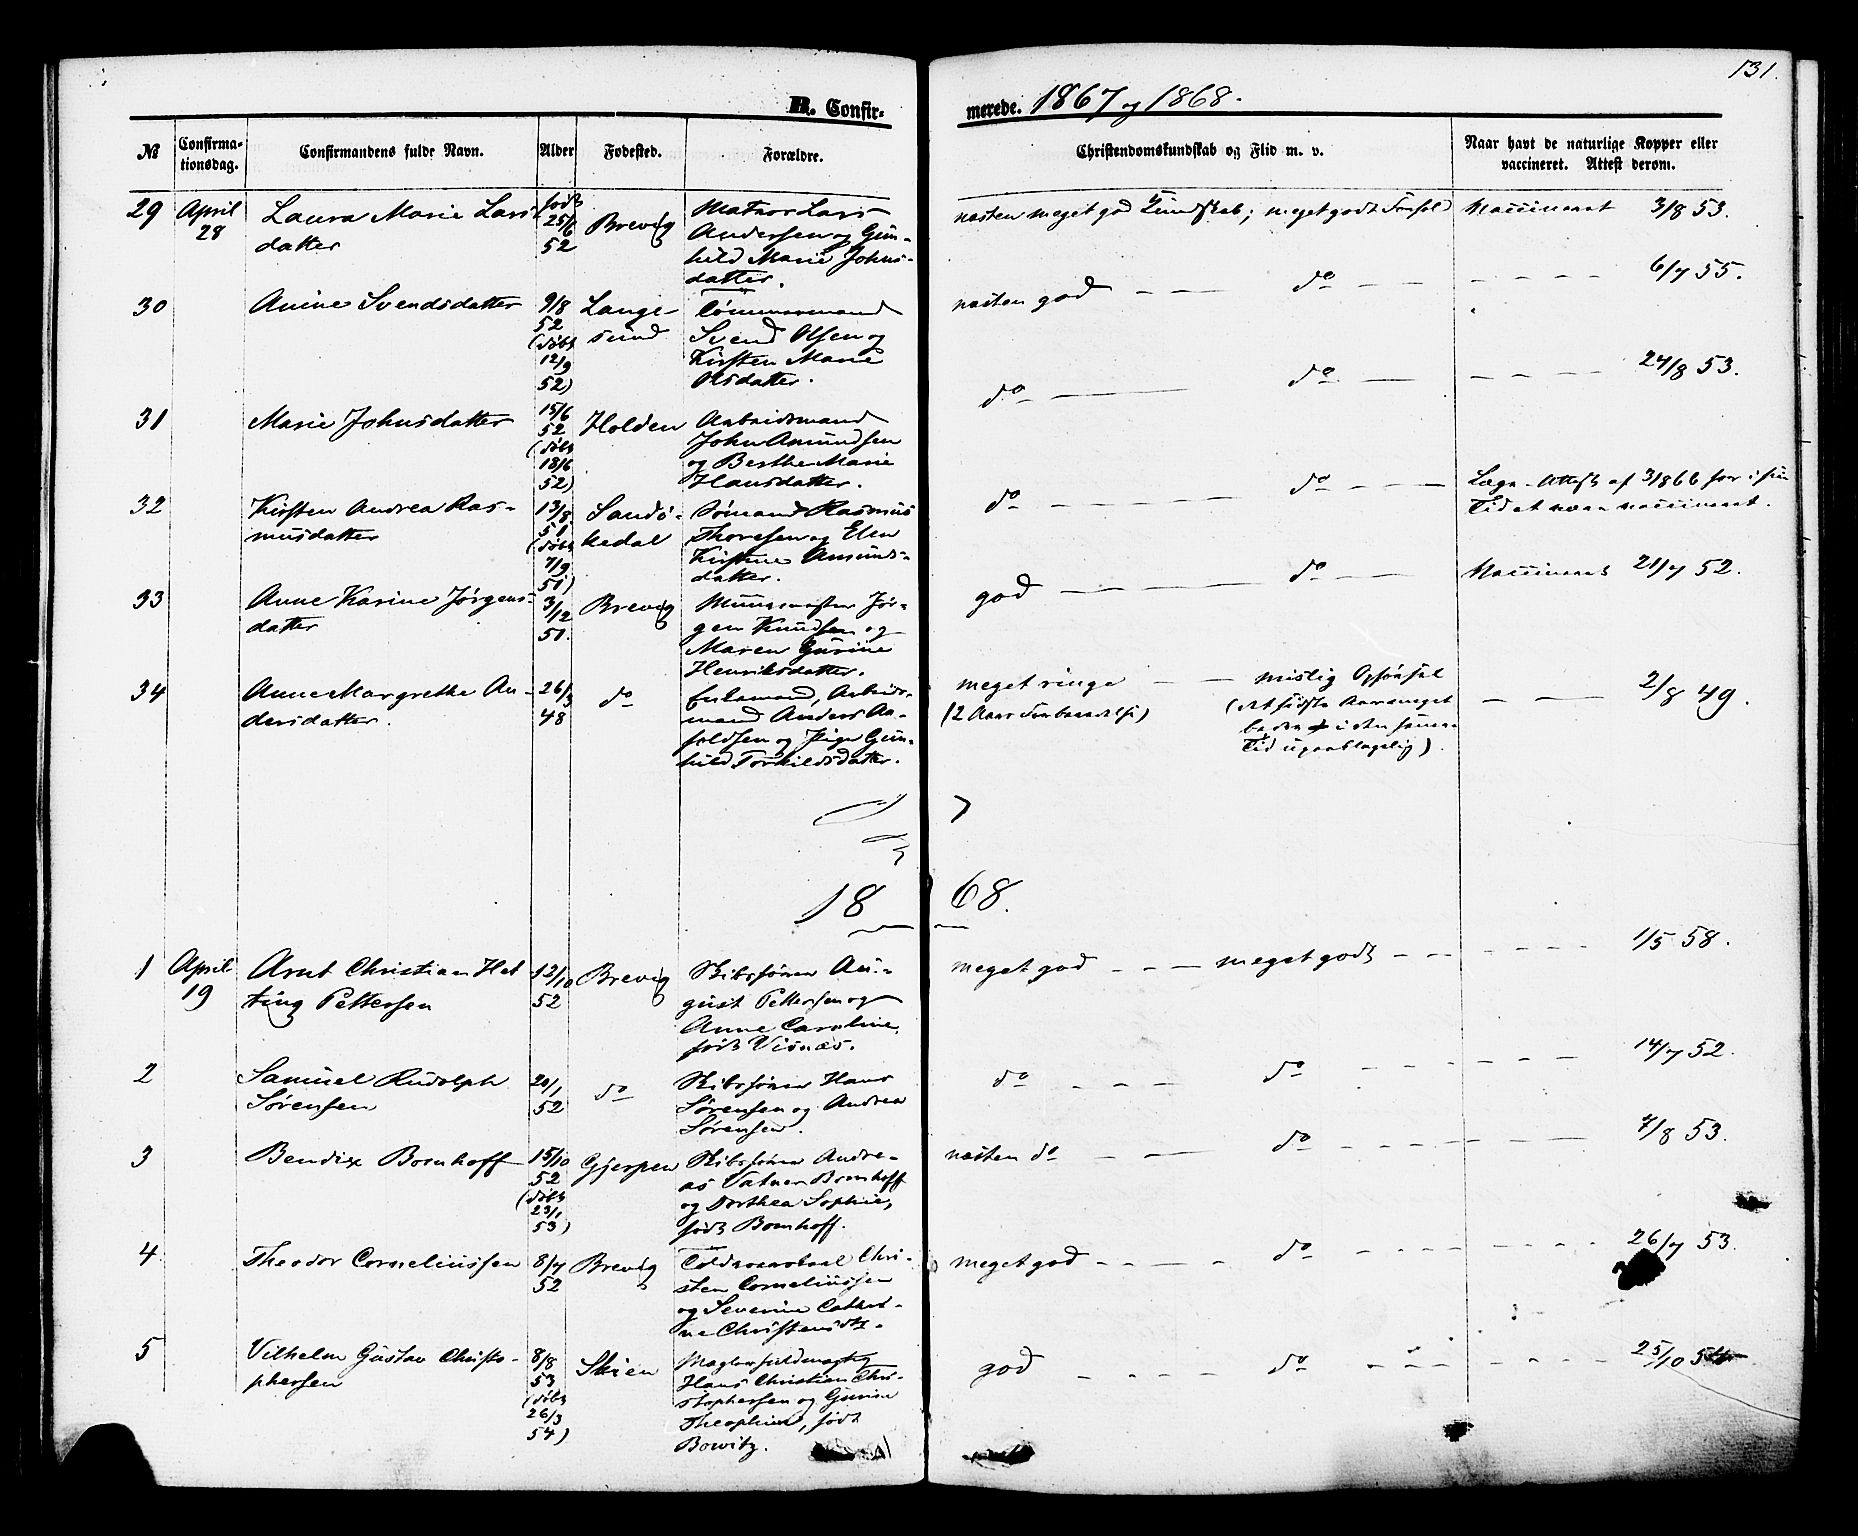 131.
B. Confir-
merede. 1867 og 1868.
№
Confirma-
tionsdag.
Confirmandens fulde Navn.
Alder
Fødested.
Forældre.
Christendomskundskab og Flid m. v.
Naar havt de naturlige Kopper eller
vaccineret. Attest derom.
29 April
28
Laura Marie Lars
datter
født
25/6
52
Brevig
Matros Lars
Andersen og Gun-
hild Marie Johns-
datter.
næsten meget god Kundskab; meget godt Forhold
Vaccineret 3/8 53.
30
Anine Svendsdatter
9/8
52
(døbt
12/9
52)
Lange-
sund
Tømmermand
Svend Olsen og
Kirsten Marie
Olsdatter.
næsten god — — do — —
- - - - 6/7 55.
31
Marie Johnsdatter
15/6
52
(døbt
18/6
52)
Holden
Arbeidsmand
John Amundsen
og Berthe Marie
Hansdatter.
do — — do — —
- - - - 24/8 53.
32
Kirsten Andrea Ras-
musdatter
13/8
51
(døbt
7/9
51)
Sandø-
kedal
Sømand Rasmus
Thoresen og Elen
Kirstine Amunds-
datter.
do — — do - - -
Læge-Attest af 3/1866 for i sin
Tid at være vaccineret.
33
Anne Karine Jørgens-
datter
3/12
51.
Brevig
Muurmester Jør-
gen Knudsen og
Maren Gurine
Henriksdatter.
god — — — do — —
Vaccineret 21/7 52.
34
Anne Margrethe An-
dersdatter.
26/3
48
do
Enkemand, Arbeids-
mand Anders Aa-
soldsen og Pige Gun-
hild Torkildsdatter.
meget ringe — — mislig Opførsel
(2 Aars Forberedelse)
(det sidste Aar meget
bedre i den senere
Tid upaaklagelig).
— — — 2/8 49.
1868.
1 April
19
Arnt Christian Het
ting Pettersen
12/10
52
Brevig
Skibsfører Au-
gust Pettersen og
Anne Caroline,
født Visnæs.
meget god - - - meget godt - - -
- - - - 1/5 58.
2
Samuel Rudolph
Sørensen
20/1
52
do
Skibsfører Hans
Sørensen og Andrea
Sørensen.
do - - - do - - -
- - - - 14/7 52.
3
Bendix Bomhoff
15/10
52
(døbt
23/1
53)
Gjerpen
Skibsfører Andre-
as Vatner Bomhoff
og Dorthea Sophie,
født Bomhoff.
næsten do - - - do - - -
- - - - 7/8 53.
4
Theodor Corneliussen
8/7
52
Brevig
Toldvaarbaal Chri-
sten Corneliussen
og Severine Cathri-
ne Christensdtr.
meget god - - - do - - -
- - - - 26/7 53.
5
Vilhelm Gustav Christo-
phersen
8/8
53
(døbt
26/3
54)
Skien
Hans Christian Chri-
stophersen og Gurine
Theophine, født
Bowitz.
god - - - - do - - -
- - - - 25/10 54